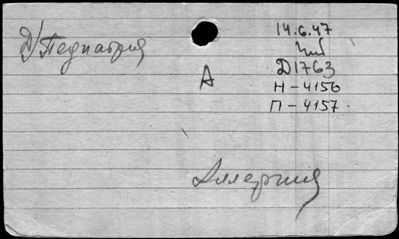 Д/Педиатрия
14.6.47
Чит
Д1763
А
Н-4156
П-4157.
Аллергия